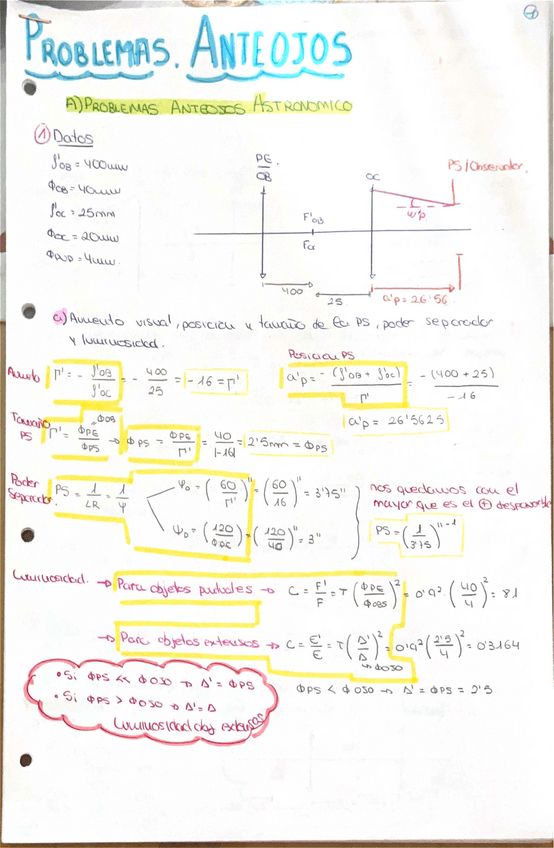 PROBLEMAS. ANTEOJOS
A) PROBLEMAS ANTEOJOS ASTRONOMICO
① Datos
f'OB = 400mm
ΦOB = 40mm
f'OC = 25mm
ΦOC = 20mm
ΦPUP = 4mm.
PE.
OB
OC
PS/Observador.
F'OB
w'p
400
25
a'p = 26'56
a) Aumento visual, posicion y tamaño de la PS, poder separador
y luminosidad.
Aumento Γ' = - f'OB / f'OC = - 400 / 25 = -16 = Γ'
Posicion PS
a'p = -(f'OB + f'OC) / Γ' = -(400 + 25) / -16
a'p = 26'5625
Tamaño PS Γ' = ΦPE / ΦPS → ΦPS = ΦPE / Γ' = 40 / |-16| = 2'5mm = ΦPS
ΦOB
Poder Separador. PS = 1 / LR = 1 / φ
φo = (60 / Γ')'' = (60 / 16)'' = 3'75''
ΨD = (120 / ΦPE)'' = (120 / 40)'' = 3''
nos quedamos con el
mayor que es el ⊕ desfavorable
PS = (1 / 3'75)''⁻¹
Luminosidad. → Para objetos puntuales → C = F' / F = τ (ΦPE / ΦOBS)² = 0'9² · (40 / 4)² = 81
→ Para objetos extensos → C = E' / E = τ (Δ' / Δ)² = 0'9² (2'5 / 4)² = 0'3164
↳ ΦOJO
ΦPS < ΦOJO → Δ' = ΦPS = 2'5
• Si ΦPS << ΦOJO → Δ' = ΦPS
• Si ΦPS > ΦOJO → Δ' = Δ
Luminosidad obj extensos